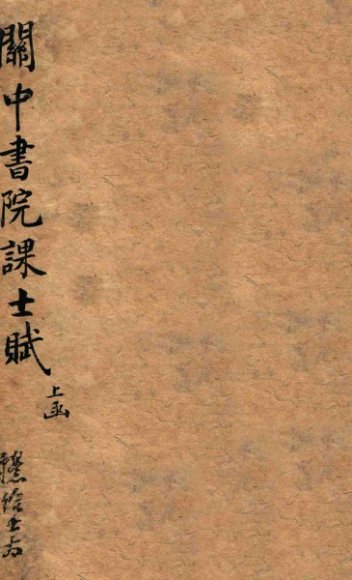 關中書院課士賦
上函